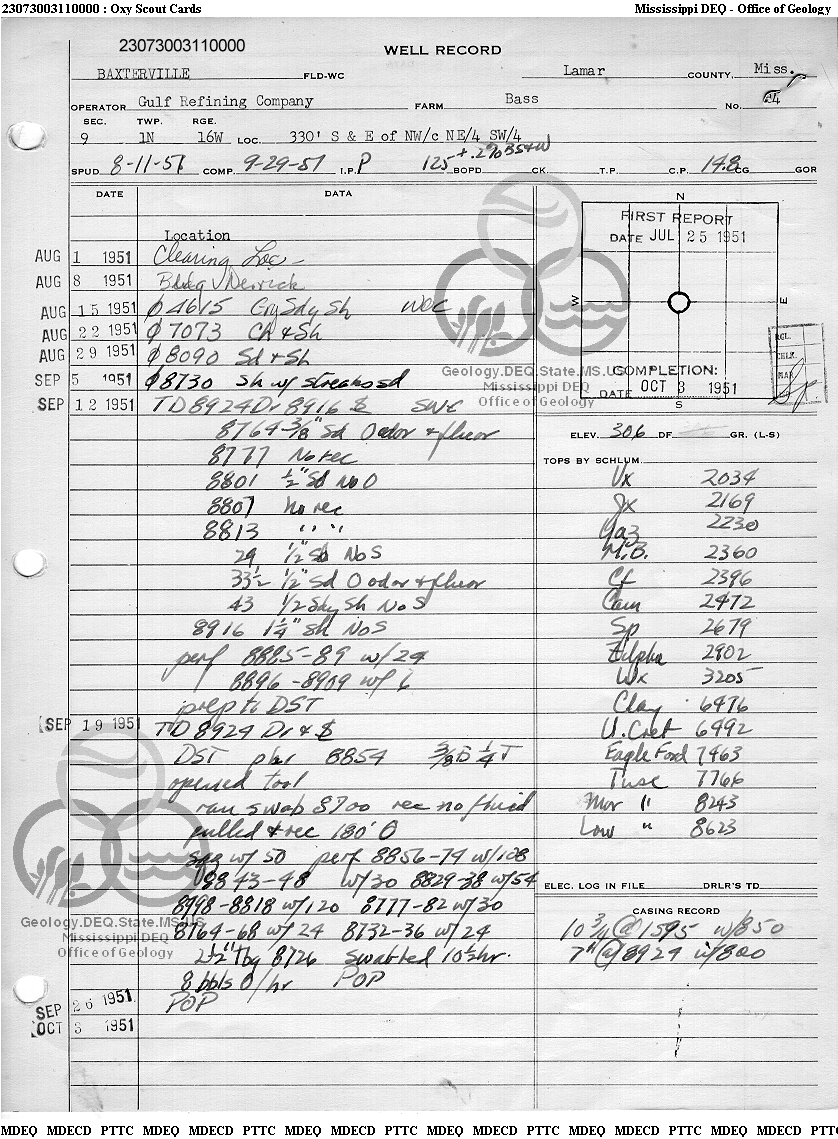 23073003110000 : Oxy Scout Cards Mississippi DEQ - Office of Geology
23073003110000
WELL RECORD
BAXTERVILLE FLD-WC Lamar COUNTY, Miss.
OPERATOR Gulf Refining Company FARM Bass No. A4
SEC. TWP. RGE.
9 1N 16W LOC. 330' S & E of NW/c NE/4 SW/4
SPUD 8-11-51 COMP. 9-29-51 I.P. P 125 BOPD CK. T.P. C.P. 14.8 CG GOR
DATE DATA
N
FIRST REPORT
DATE JUL 25 1951
W E
COMPLETION:
DATE OCT 3 1951
S
Location
AUG 1 1951 Clearing Loc
AUG 8 1951 Bldg Derrick
AUG 15 1951 Ø 4615 Gry Sdy Sh WOC
AUG 22 1951 Ø 7073 Ch & Sh
AUG 29 1951 Ø 8090 Sd & Sh
SEP 5 1951 Ø 8730 Sh w/ streaks sd
SEP 12 1951 TD 8924 Dr 8916 $ SWC
8764 - 3/8" Sd O odor & fluor
8777 No rec
8801 1/2" Sd No O
8807 no rec
8813 " "
29 1/2" Sd No S
33 1/2 1/2" Sd O odor & fluor
43 1/2 Sdy Sh No S
8916 1 1/4" Sh No S
perf 8885-89 w/24
8896-8909 w/6
prep to DST
SEP 19 1951 TD 8924 Dr & $
DST pkr 8854 3/8 B 1/4 T
opened tool
ran swab 8700 rec no fluid
pulled & rec 180' O
sqq w/50 perf 8856-74 w/108
8843-48 w/30 8829-38 w/54
8798-8818 w/120 8777-82 w/30
8764-68 w/24 8732-36 w/24
2 1/2" Tbg 8726 swabbed 10 1/2 hr.
8 bbls O/hr POP
SEP 26 1951 POP
OCT 3 1951
ELEV. 306 DF GR. (L-S)
TOPS BY SCHLUM.
Vx 2034
Jx 2169
Yaz 2230
M.B. 2360
Cf 2396
Cam 2472
Sp 2679
Zilpha 2902
Wx 3205
Clay 6476
U. Cret 6492
Eagle Ford 7463
Tusc 7766
Mar " 8243
Low " 8623
ELEC. LOG IN FILE DRLR'S TD
CASING RECORD
10 3/4 @ 1595 w/850
7" @ 8924 w/800
Geology.DEQ.State.MS.US
Mississippi DEQ
Office of Geology
Geology.DEQ.State.MS.US
Mississippi DEQ
Office of Geology
MDEQ MDECD PTTC MDEQ MDECD PTTC MDEQ MDECD PTTC MDEQ MDECD PTTC MDEQ MDECD PTTC MDEQ MDECD PTTC